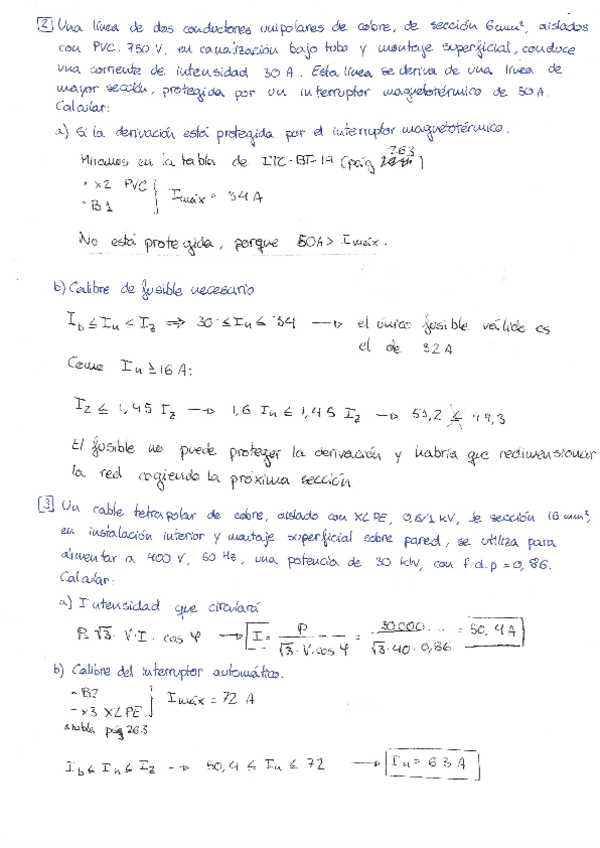 [2] Una línea de dos conductores unipolares de cobre, de sección 6mm², aislados
con PVC, 750 V, en canalización bajo tubo y montaje superficial, conduce
una corriente de intensidad 30 A. Esta línea se deriva de una línea de
mayor sección, protegida por un interruptor magnetotérmico de 50A.
Calcular:
a) Si la derivación está protegida por el interruptor magnetotérmico.
Miramos en la tabla de ITC-BT-19 (pág 263)
· x2 PVC } Imáx = 34 A
- B1
No está protegida, porque 50A > Imáx.
b) Calibre de fusible necesario
Ib ≤ In ≤ Iz ⇒ 30 ≤ In ≤ 34 → el único fusible válido es
el de 32A
Como In ≥ 16 A:
I2 ≤ 1,45 Iz → 1,6 In ≤ 1,45 Iz → 51,2 ≰ 49,3
El fusible no puede proteger la derivación y habría que redimensionar
la red cogiendo la próxima sección
[3] Un cable tetrapolar de cobre, aislado con XLPE, 0,6/1 kV, de sección 16 mm²,
en instalación interior y montaje superficial sobre pared, se utiliza para
alimentar a 400 V, 50 Hz, una potencia de 30 kW, con f.d.p = 0,86.
Calcular:
a) Intensidad que circulará
P = √3 · V · I · cos φ → I = P / √3 · V · cos φ = 30000 / √3 · 40 · 0,86 = 50,4 A
b) Calibre del interruptor automático.
- B2 } Imáx = 72 A
- x3 XLPE
tabla pág 263
Ib ≤ In ≤ Iz → 50,4 ≤ In ≤ 72 → In = 63 A